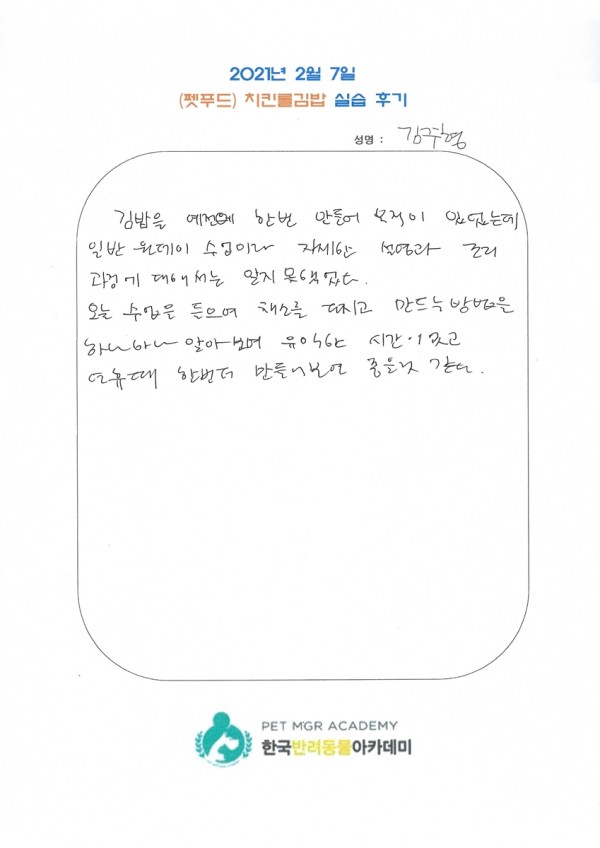 2021년 2월 7일
(펫푸드) 치킨롤김밥 실습 후기
성명 : 김주형
김밥을 예전에 한번 만들어 본적이 있었는데
일반 원데이 수업이라 자세한 설명과 조리
과정에 대해서는 알지 못했었다.
오늘 수업을 들으며 채소를 다지고 만드는 방법을
하나하나 알아보며 유익한 시간이었고
연휴때 한번더 만들어보면 좋을것 같다.
PET MGR ACADEMY
한국반려동물아카데미